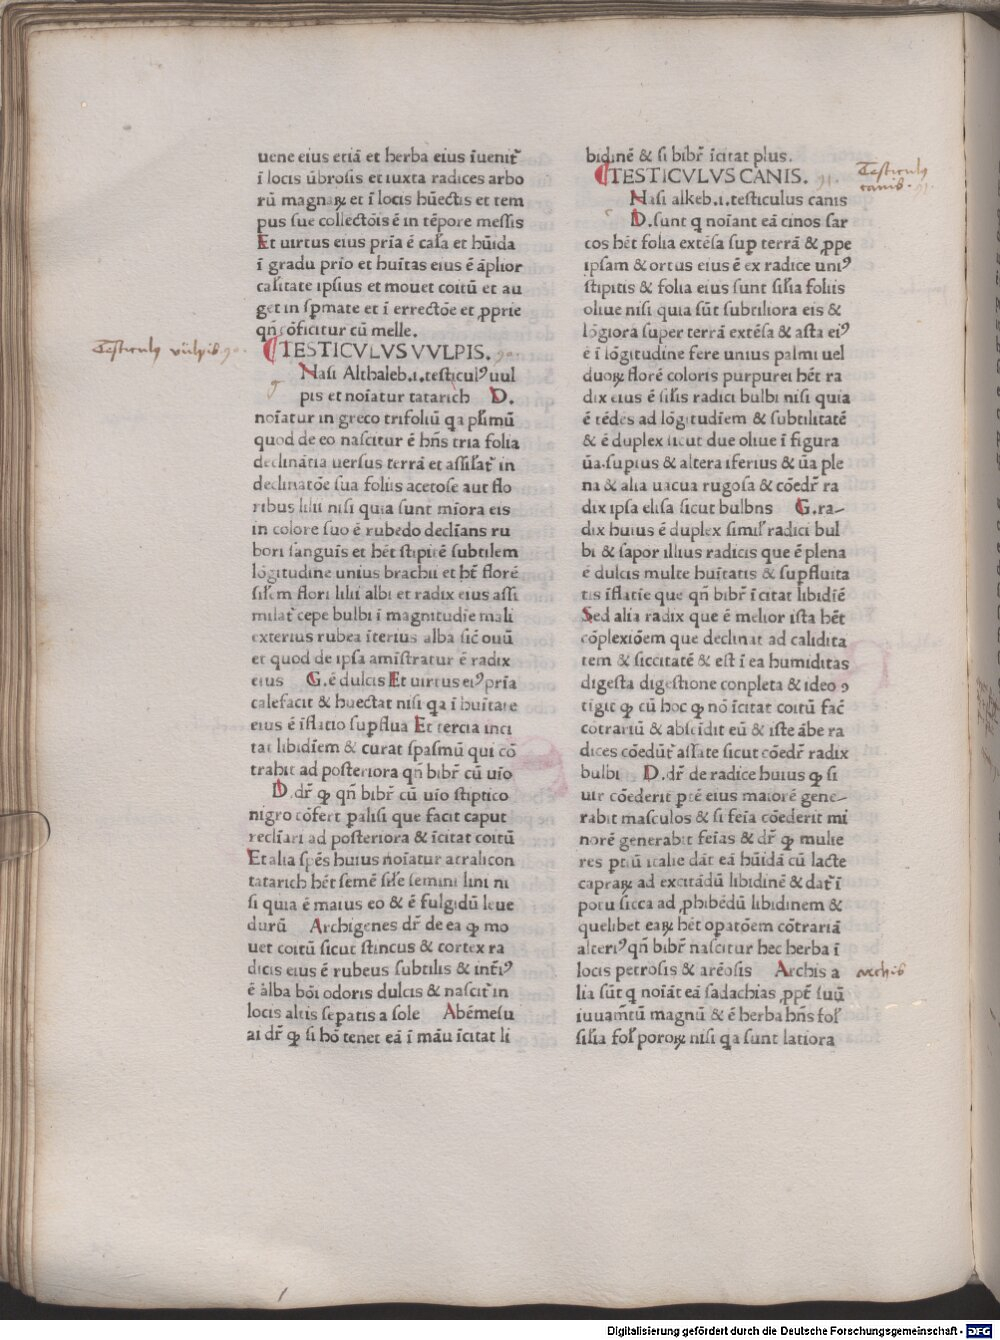 uene eius etiā et herba eius īuenit᷑
ī locis ūbrosis et iuxta radices arbo
rū magnaꝝ et ī locis hūectis et tem
pus sue collectōis ē in tēpore messis
Et uirtus eius pria ē calꝰa et hūida
ī gradu prio et huītas eius ē āplior
calꝰitate ipsius et mouet coitū et au
get in sꝑmate et ī errectōe et ꝓprie
qn̄ cōficitur cū melle.
Testiculꝰ vulpis 90.
TESTICVLVS VVLPIS. 90.
Nasi Althaleb.i.testiculꝰ uul
pis et noīatur tatarich D.
noīatur in greco trifoliū qa pl̄imū
quod de eo nascitur ē hn̄s tria folia
declinātia uersus terrā et assil̄at᷑ in
declinatōe sua foliis acetose aut flo
ribus lilii nisi quia sunt mīora eis
in colore suo ē rubedo declīans ru
bori sanguis et hēt stipitē subtilem
lōgitudine unius brachii et hēt florē
sil̄em flori lilii albi et radix eius assi
milat᷑ cepe bulbi ī magnitudīe mali
exterius rubea īterius alba sic̄ ouū
et quod de ipsa amīstratur ē radix
eius G.ē dulcis Et uirtus eiꝰ pria
calefacit & huectat nisi qa ī huītate
eius ē īflatio suꝑflua Et tercia inci
tat libidīem & curat spasmū qui cō
trahit ad posteriora qn̄ bibr̄ cū uīo
D.dr̄ ꝙ qn̄ bibr̄ cū uīo stiptico
nigro cōfert ꝑalisi que facit caput
reclīari ad posteriora & īcitat coitū
Et alia spēs huius noīatur atralicon
tatarich hēt semē sil̄e semini lini ni
si quia ē maius eo & ē fulgidū leue
durū Archigenes dr̄ de ea ꝙ mo
uet coitū sicut stincus & cortex ra
dicis eius ē rubeus subtilis & int̄iꝰ
ē alba bōi odoris dulcis & nascit᷑ in
locis altis seꝑatis a sole Abēmesu
ai dr̄ ꝙ si hō tenet eā ī māu īcitat li
bidinē & si bibr̄ īcitat plus.
TESTICVLVS CANIS. 91.
Testiculꝰ
canis. 91.
Nasi alkeb.i.testiculus canis
D.sunt q noīant eā cinos sar
cos hēt folia extēsa suꝑ terrā & ꝓpe
ipsam & ortus eius ē ex radice uniꝰ
stipitis & folia eius sunt sil̄ia foliis
oliue nisi quia sūt subtiliora eis &
lōgiora super terrā extēsa & asta eiꝰ
ē ī lōgitudine fere unius palmi uel
duoꝝ florē coloris purpurei hēt ra
dix eius ē sil̄is radici bulbi nisi quia
ē tēdes ad lōgitudīem & subtilitatē
& ē duplex sicut due oliue ī figura
ūa.supius & altera iferius & ūa ple
na & alia uacua rugosa & cōedr̄ ra
dix ipsa elisa sicut bulbns G.ra-
dix huius ē duplex simil̄ radici bul
bi & sapor illius radicis que ē plena
ē dulcis multe huītatis & suꝑfluita
tis īflatīe que qn̄ bibr̄ īcitat libidīē
Sed alia radix que ē melior ista hēt
cōplexiōem que declinat ad calidita
tem & siccitatē & est ī ea humiditas
digesta digestione conpleta & ideo ꝯ
tigit ꝙ cū hoc ꝙ nō īcitat coitū fac̄
cotrariū & abscīdit eū & iste ābe ra
dices cōedūt᷑ assate sicut cōedr̄ radix
bulbi D.dr̄ de radice huius ꝙ si
uir cōederit ptē eius maiorē gene-
rabit masculos & si feīa cōederit mi
norē generabit feīas & dr̄ ꝙ mulie
res ptiū italie dāt eā hūidā cū lacte
capraꝝ ad excitādū libidinē & dat᷑ ī
potu sicca ad ꝓhibēdū libidinem &
quelibet eaꝝ hēt opatōem cōtrariā
alteriꝰ qn̄ bibr̄ nascitur hec herba ī
locis petrosis & arēosis Archis a
archis
lia sūt q noīāt eā sadachias ꝓpt̄ suū
iuuamt̄ū magnū & ē herba hn̄s fol̄
sil̄ia fol̄ poroꝝ nisi qa sunt latiora
Digitalisierung gefördert durch die Deutsche Forschungsgemeinschaft - DFG